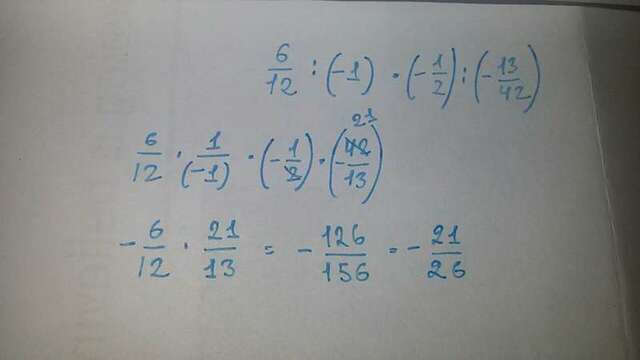 6/12 : (-1) · (-1/2) : (-13/42)
21
6/12 · 1/(-1) · (-1/2) · (-42/13)
-6/12 · 21/13 = -126/156 = -21/26